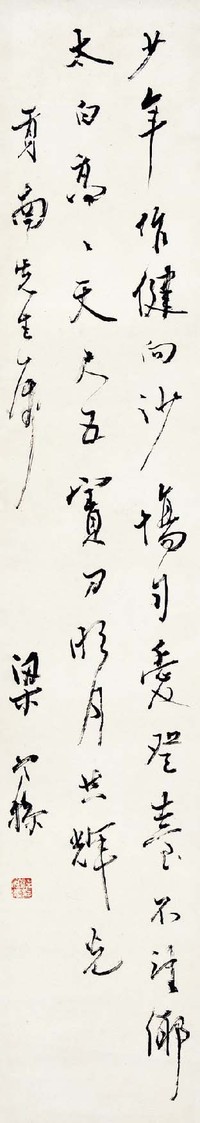 少年作健向沙場自愛登臺不望鄉
太白高〻天尺五寶刀明月共輝光
南先生
梁寒操